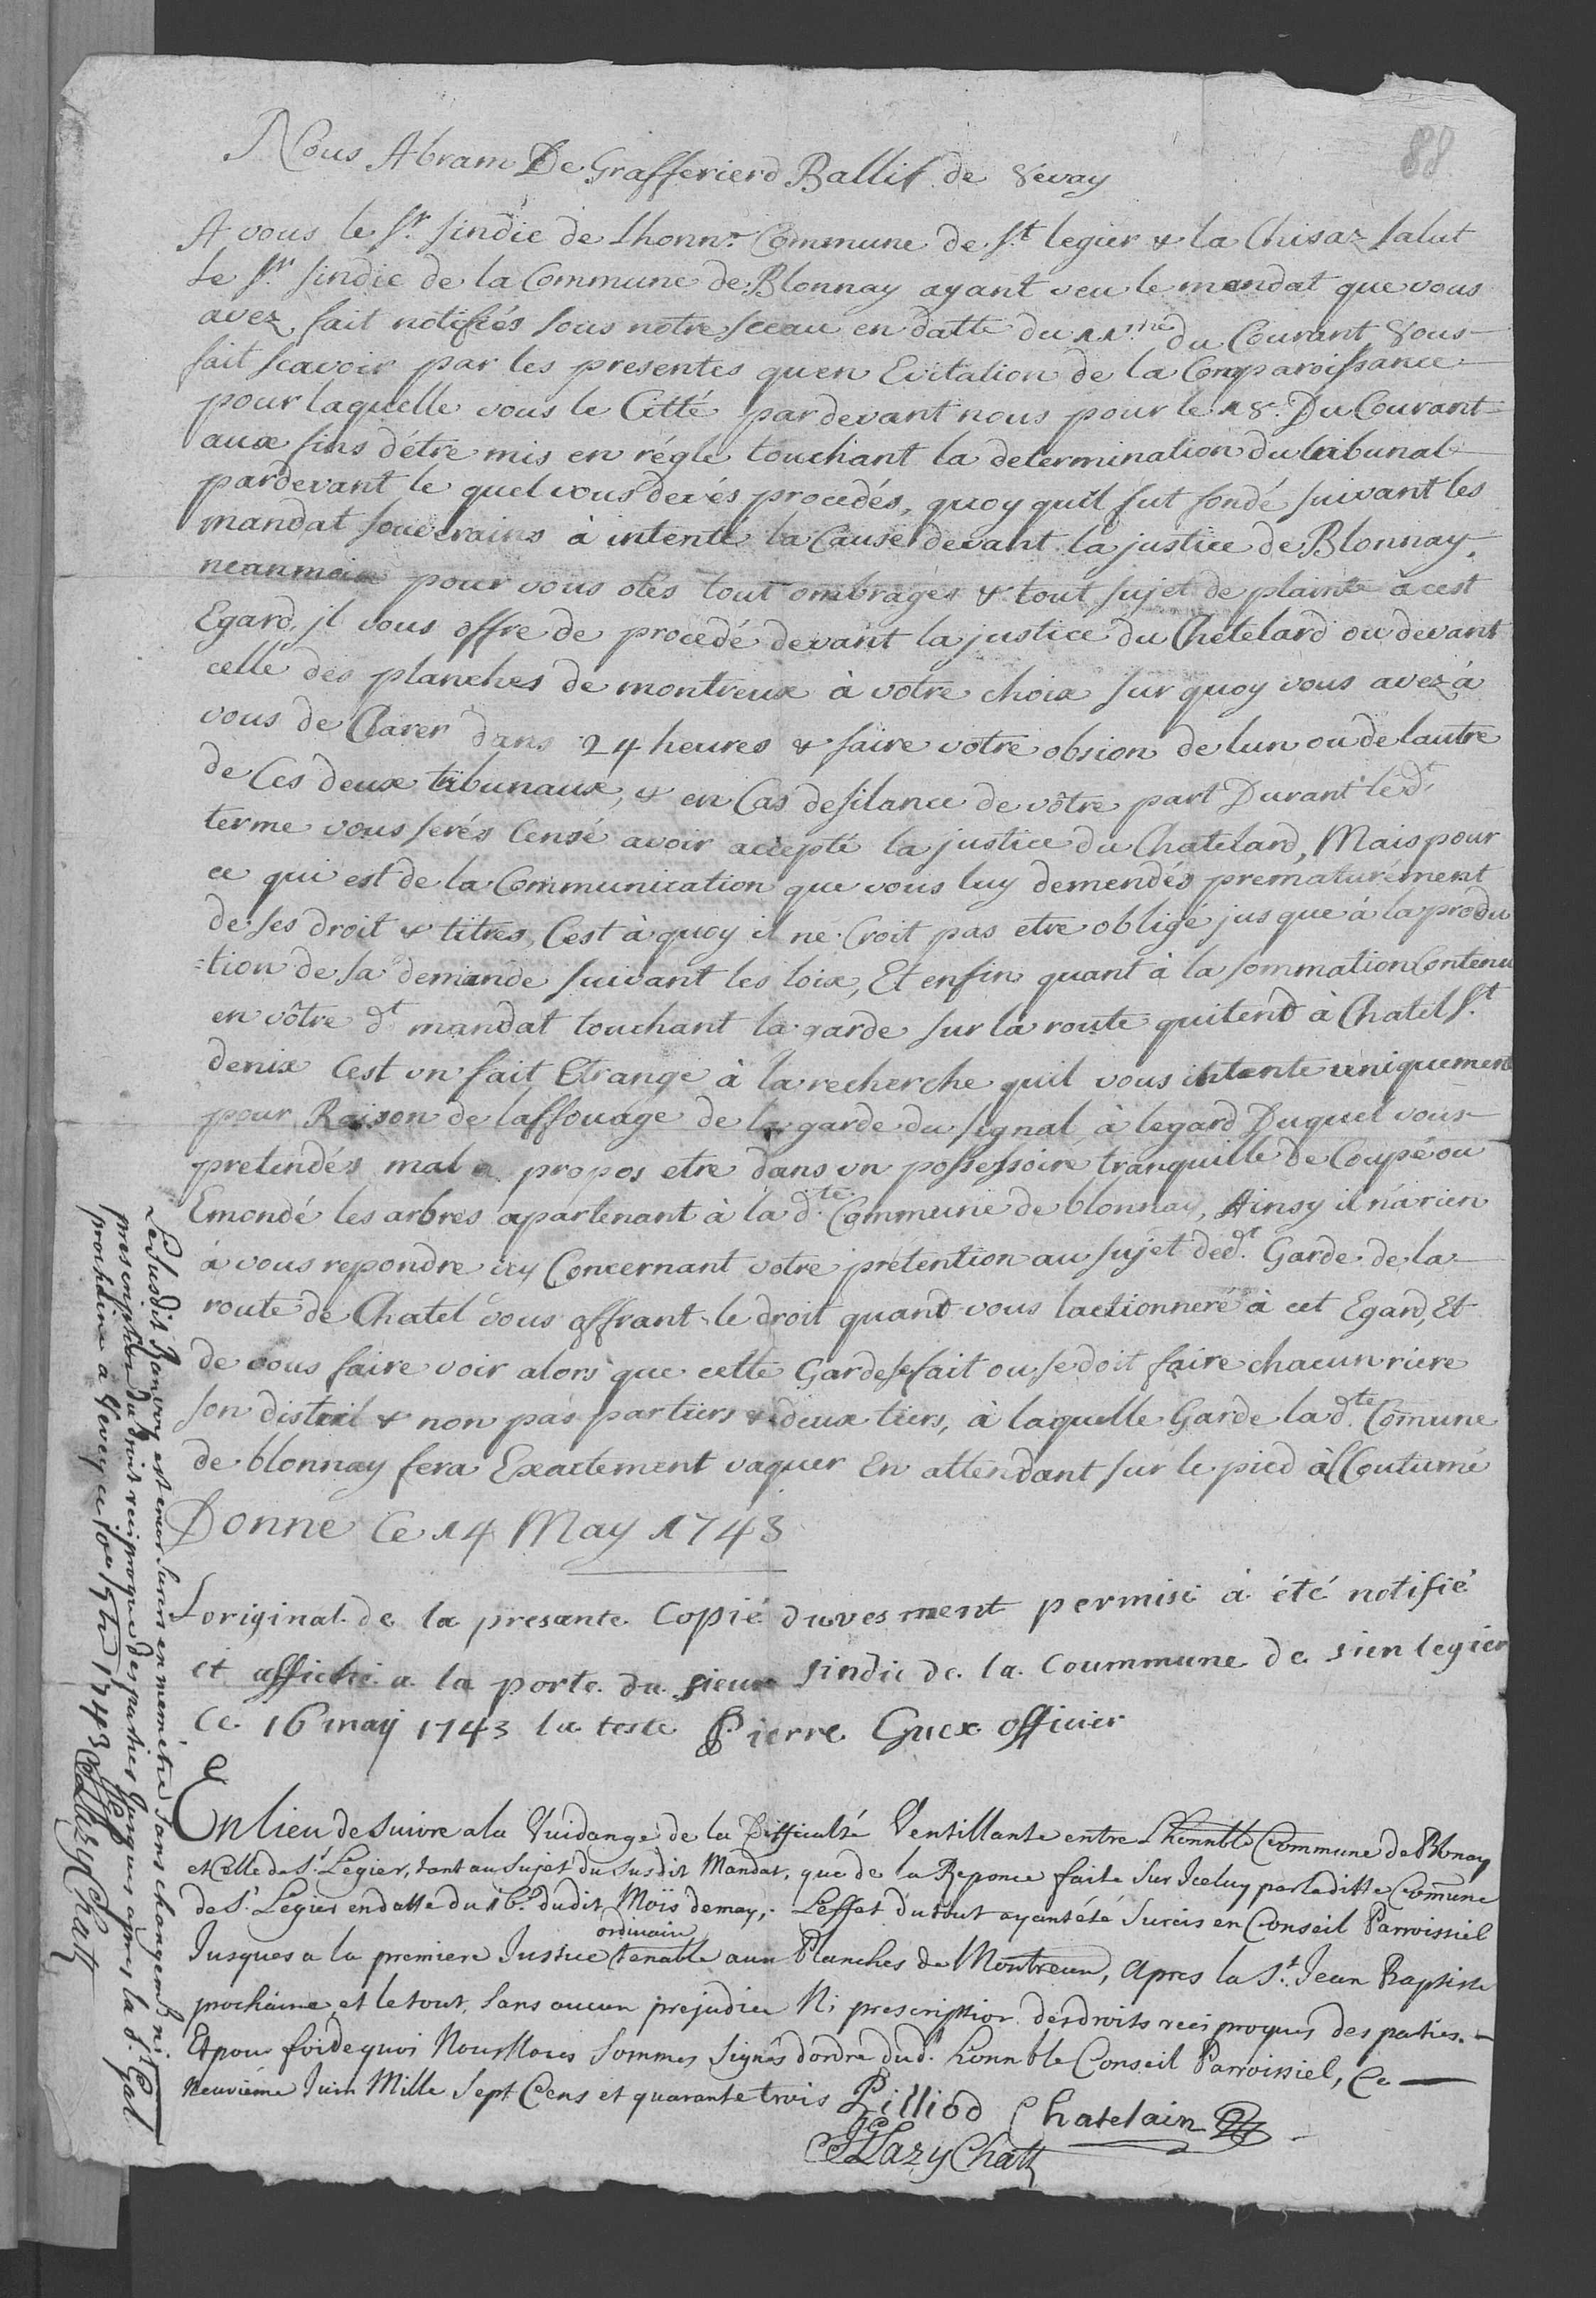 88
Nous Abram De Grafferierd Ballif de Vevay
A vous le Sr. sindic de Lhonn.e Commune de St. legier & la Chisaz salut
Le Sr. sindic de la Commune de Blonnay ayant veu le mandat que vous
avez fait notifiés sous notre sceau en datte du 11.me du Courant vous
fait scavoir par les presentes quen Evitation de la Comparoissance
pour laquelle vous le Citté par devant nous pour le 18e. Du Courant
aux fins d'être mis en régle touchant la determination du tribunal
pardevant le quel vous devés procedés, quoy quil fut fondé suivant les
mandat souverains à intenté la Cause devant la justice de Blonnay,
neanmoin pour vous otés tout ombrages & tout sujet de plainte à cest
Egard, jl vous offre de procedé devant la justice du Chetelard ou devant
celle des planches de montreux à votre choix sur quoy vous avez à
vous de Clarer dans 24 heures & faire votre obsion de lun ou de lautre
de Ces deux tribunaux, & en Cas de silance de vôtre part Durant le dt.
terme vous serés Censé avoir accepté la justice du Chatelard, Mais pour
ce qui est de la Communication que vous luy demendés prematurément
de ses droit & titres, Cest à quoy il ne Croit pas etre obligé jusque à la produ
=tion de sa demande suivant les loix, Et enfin quant à la sommation Contenu
en vôtre dt mandat touchant la garde sur la route quitend à Chatel St.
denix Cest un fait Etrange à la recherche quil vous intente uniquement
pour Raison de laffouage de la garde du signal à legard Duquel vous
pretendés mal a propos etre dans un possessoire tranquille de Coupé ou
Emondé les arbres apartenant à la dte. Commune de blonnay, Ainsy il na rien
à vous repondre icy Concernant votre prétention au sujet de dt. Garde de la
route de Chatel vous offrant le droit quand vous lactionneré à cet Egard, Et
de vous faire voir alors que cette Garde se fait ou se doit faire chacun riere
son distric & non pas par tiers & deux tiers, à laquelle Garde la dte. Comune
de blonnay fera Exactement vaquer En attendant sur le pied àCCoutumé
Donne Ce 14 May 1743
L'original de la presante Copié duvesment permise à été notifié
et affiché a la porte du sieur sindic de la Coummune de sien legier
Ce 16 may 1743 la teste Pierre Guex officier
En lieu de suivre a la Vuidange de la Difficulté Ventillante entre Lhonnble Commune de Blonay
et Celle de St. Legier, tant au sujet du susdit Mandat, que de la Reponce faite sur Iceluy par laditte Comune
de St. Legier en datte du 16e. dudit Mois de may,. L'effet du tout ayant été surcis en Conseil Parroissiel
Jusques a la premiere Justice ordinaire tenable aux Planches de Montreux, Apres la St. Jean Baptiste
prochaine, et le tout, sans aucun prejudice Ni prescription des droits reciproques des parties.
Et pour foi de quoi Nous Nous sommes signés d'ordre dud. honnble Conseil Parroissiel, Ce
Neuvieme Juin Mille Sept Cens et quarante trois Pilliod Chatelain
Mazy Chatt
Le susdit Renvoy est encor surcis en meme être sans changem.t ni
prescription du droit reciproque des parties Jusques apres la St. Gal
prochaine a Vevey ce 10e 7bre 1743 Mazy Chatt